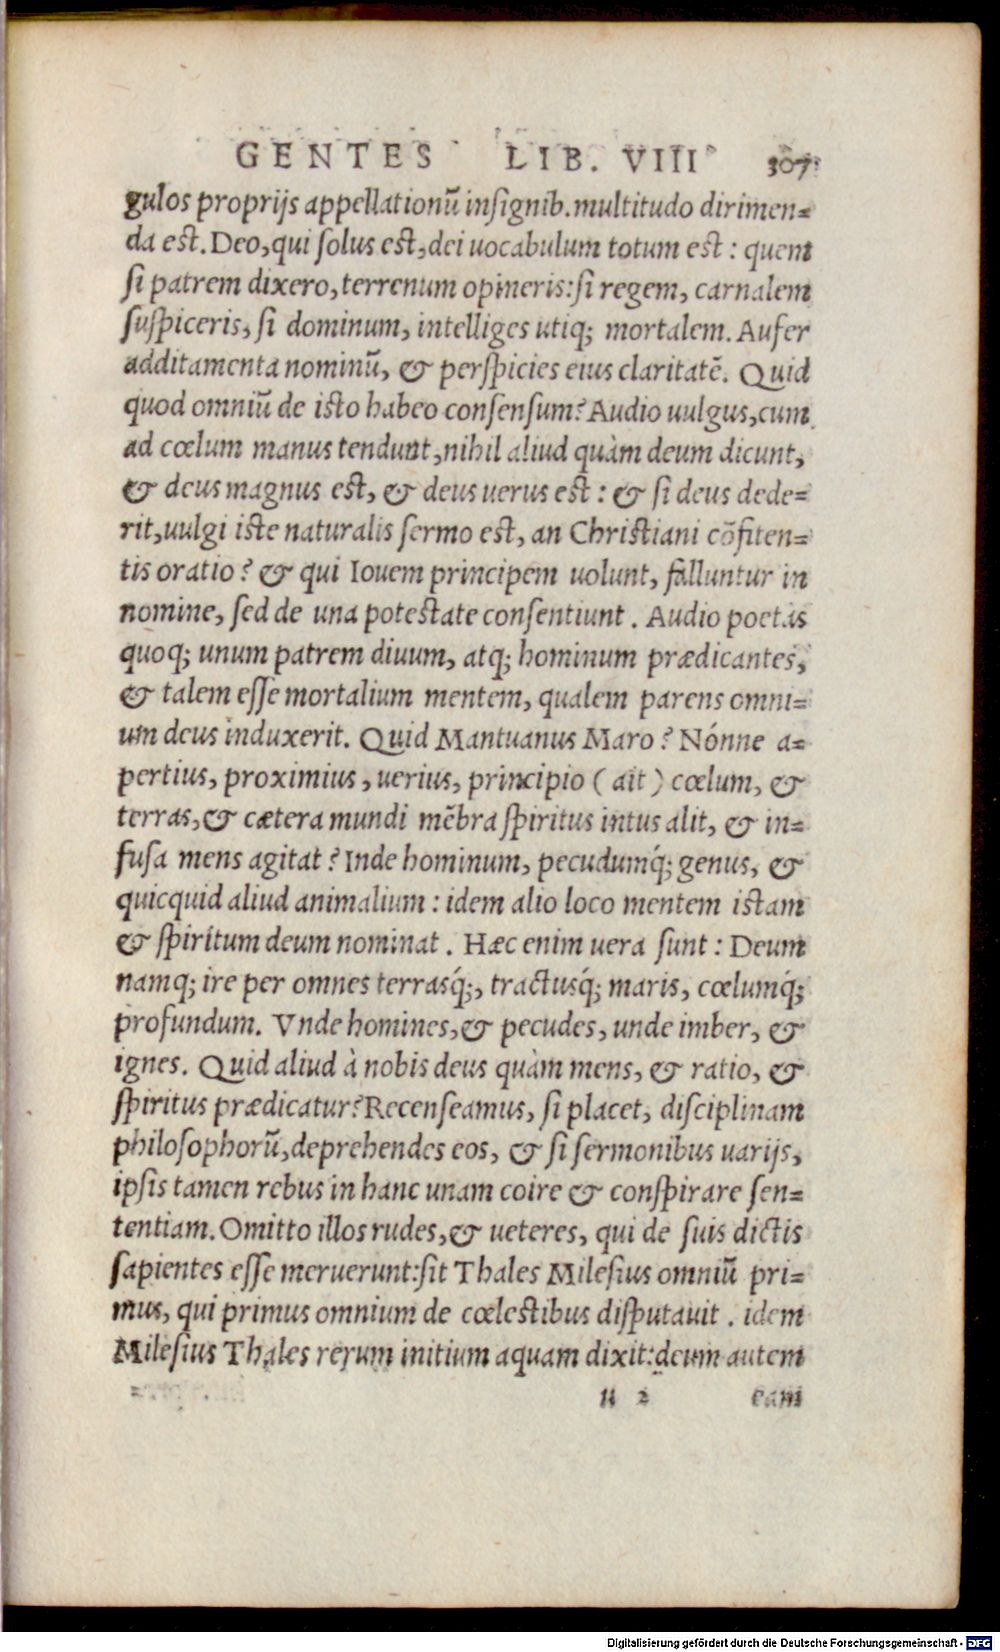 GENTES LIB. VIII 307
gulos proprijs appellationũ insignib. multitudo dirimen=
da est. Deo, qui solus est, dei uocabulum totum est : quem
si patrem dixero, terrenum opineris: si regem, carnalem
suspiceris, si dominum, intelliges utiq; mortalem. Aufer
additamenta nominũ, & perspicies eius claritatẽ. Quid
quod omniũ de isto habeo consensum? Audio uulgus, cum
ad cœlum manus tendunt, nihil aliud quàm deum dicunt,
& deus magnus est, & deus uerus est : & si deus dede=
rit, uulgi iste naturalis sermo est, an Christiani cõfiten=
tis oratio? & qui Iouem principem uolunt, falluntur in
nomine, sed de una potestate consentiunt. Audio poetas
quoq; unum patrem diuum, atq; hominum prædicantes,
& talem esse mortalium mentem, qualem parens omni=
um deus induxerit. Quid Mantuanus Maro? Nónne a=
pertius, proximius, uerius, principio ( ait ) cœlum, &
terras, & cætera mundi mẽbra spiritus intus alit, & in=
fusa mens agitat? Inde hominum, pecudumq́; genus, &
quicquid aliud animalium : idem alio loco mentem istam
& spiritum deum nominat. Hæc enim uera sunt : Deum
namq; ire per omnes terrasq́;, tractusq́; maris, cœlumq́;
profundum. Vnde homines, & pecudes, unde imber, &
ignes. Quid aliud à nobis deus quàm mens, & ratio, &
spiritus prædicatur? Recenseamus, si placet, disciplinam
philosophorũ, deprehendes eos, & si sermonibus uarijs,
ipsis tamen rebus in hanc unam coire & conspirare sen=
tentiam. Omitto illos rudes, & ueteres, qui de suis dictis
sapientes esse meruerunt: sit Thales Milesius omniũ pri=
mus, qui primus omnium de cœlestibus disputauit. idem
Milesius Thales rerum initium aquam dixit: deum autem
u 2 eam
Digitalisierung gefördert durch die Deutsche Forschungsgemeinschaft - DFG